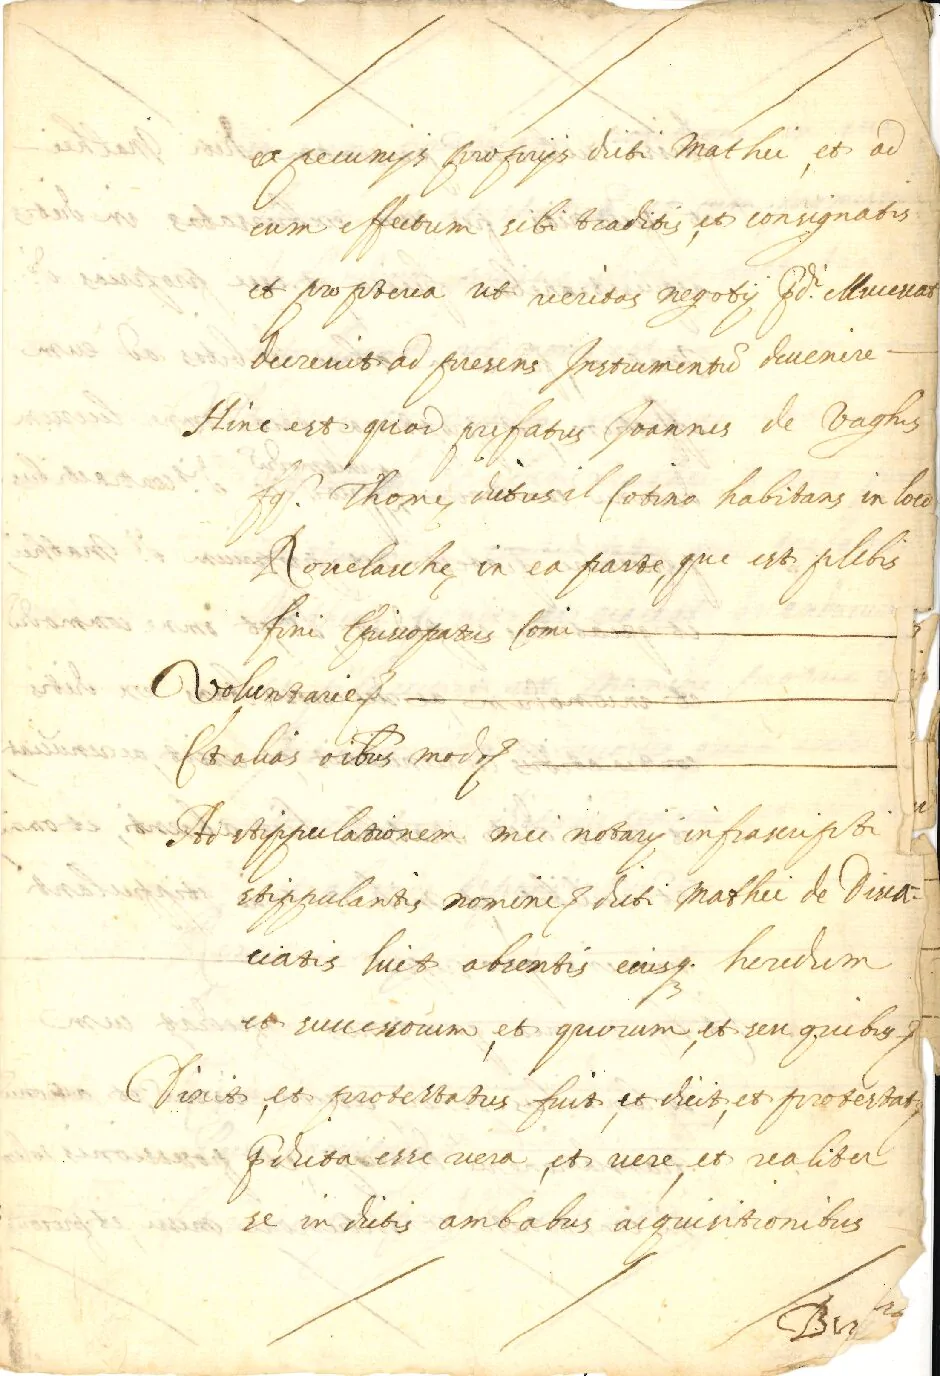 ex pecunijs proprijs dicti Mathei, et ad
eum effectum sibi traditis, et consignatis
et propterea ut veritas negotij pdi. ellucescat
decrevit ad presens Instrumentū devenire
Hinc est quod prefatus Joannes de Vaghis
fq. Thome, dictus il Cotino habitans in loco
Rovelasche, in ea parte, que est plebis
fini Episcopatus Comi
Voluntarie
Et alias oibus modo
Ad stippulationem mei notarij infrascripti
stippulantis nomine dicti Mathei de Disca-
ciatis licet absentis eiusq. heredum
et successorum, et quorum, et seu quibus
Dixit, et protestatus fuit, et dicit, et protestat
pdicta esse vera, et vere, et realiter
se in dictis ambabus acquisitionibus